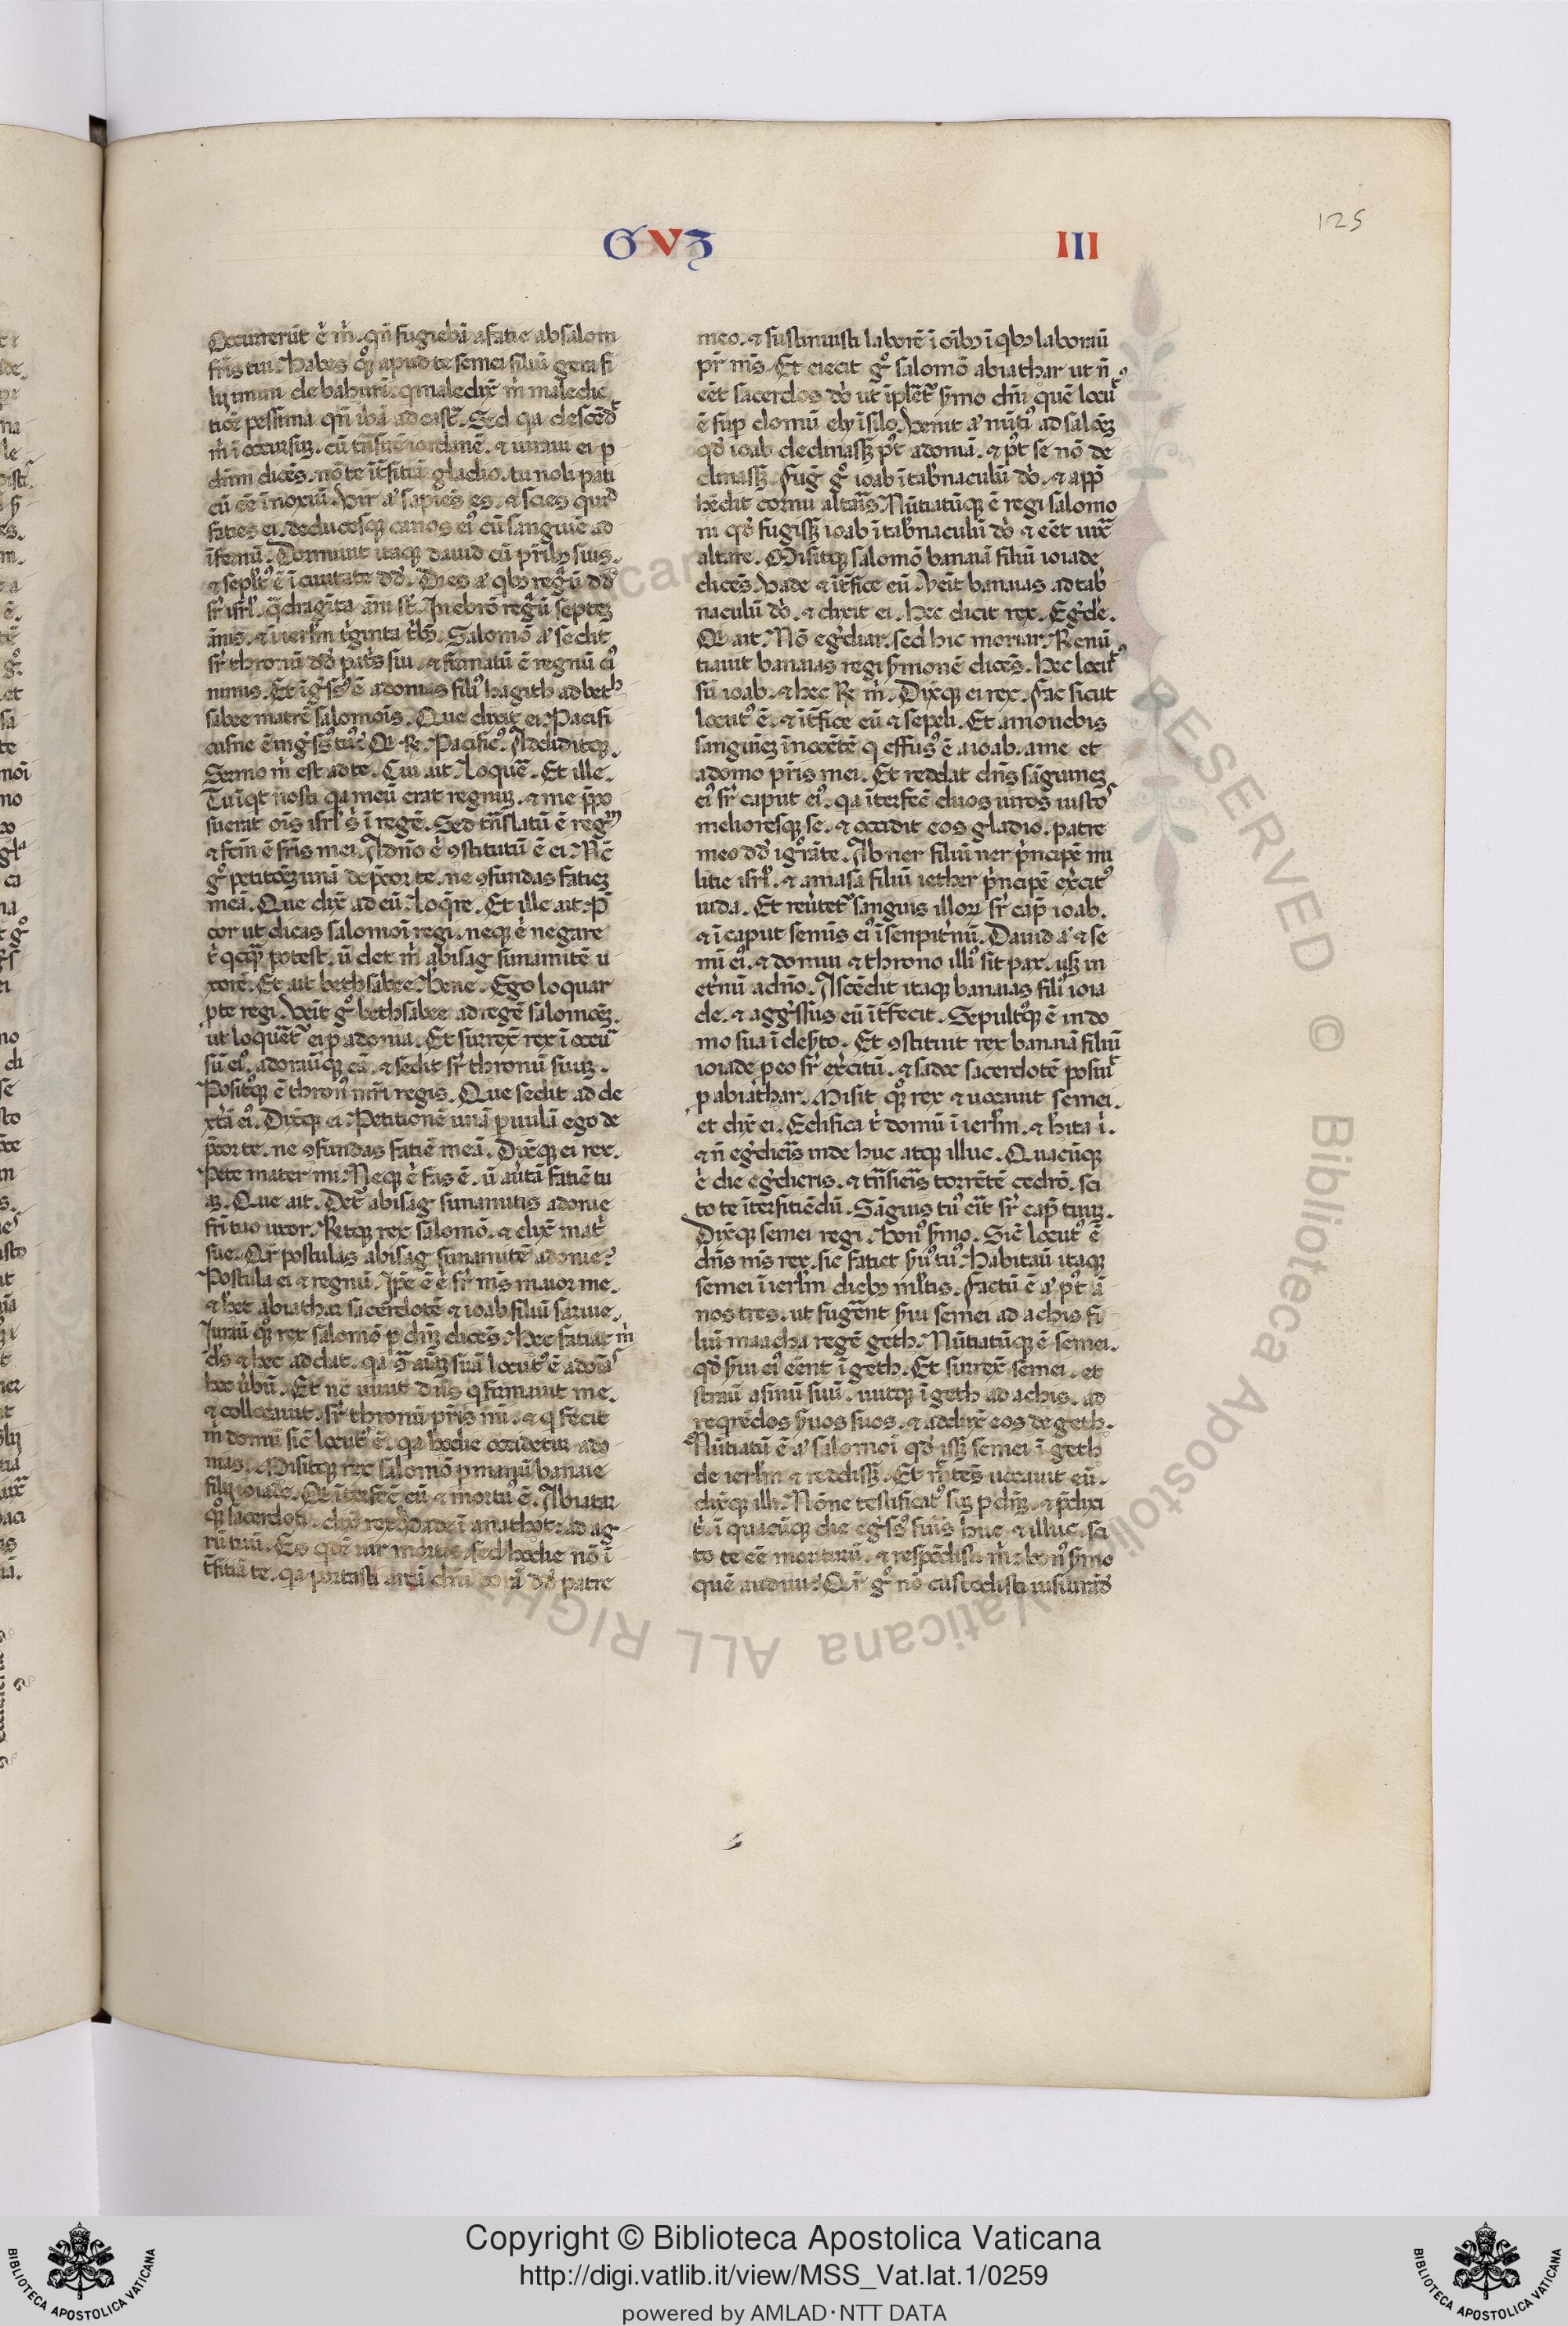 GVꝫ III
125
Occurrerūt .n. m̄ . qn̄ fugiebā a fatie absalom
fr̄is tui. Habes qͦꝫ apud te semei filiū gera fi
lij imini de bahuri. q maledix̄ m̄ maledic
tiōe pessima qn̄ ibā ad castͣ. Sed qa descēdͭ
m̄ ī occursuꝫ . cū trāsirē iordanē . ⁊ iuraui ei p
dn̄m dicēs . nō te īt̄fitiā gladio . tu noli pati
cū eē īnoxiū. Vir aͥ sapiēs es . ⁊ scies quid
faties ei . deducesqꝫ canos eiꝰ cū sanguīe ad
īfernū. Dormiuit itaqꝫ dauid cū pr̄ibꝫ suis .
⁊ sepl̄tꝰ ē ī ciuitate dd̄. Dies aͥ qbꝫ regͣuͭ dd̄
sr̄ isrl̄ . qͣdragīta ānī st̄. In ebrō regͣuͭ septeꝫ
ānis . ⁊ ī ierl̄m tͥginta tͥbꝫ. Salomō aͥ sedit
sr̄ thronū dd̄ patͥs sui . ⁊ firmatū ē regnū eiꝰ
nimis. Et īgͤssꝰ ē adonias filiꝰ hagith ad beth
sabee matrē salomōis. Que dixit ei. Pacifi
cusne ē ingͤssꝰ tuꝰ? Qi R̄. Pacificꝰ. Addiditqꝫ .
Sermo m̄ est ad te. Cui ait. Loquē. Et ille.
Tu īqt nosti qa meū erat regnuꝫ . ⁊ me p̄po
suerat oīs isrl̄ sͥ ī regē. Sed trāslatū ē regnū
⁊ fcm̄ ē fr̄is mei. A dn̄o .n. ꝯstitutū ē ei. Nc̄
gͦ petitiōeꝫ unā dep̄cor te . ne ꝯfundas fatieꝫ
meā. Que dix̄ ad eū. Loqͤre. Et ille ait. P̄
cor ut dicas salomōi regi . neqꝫ .n. negare
tͥ qcqͣ potest . ū det m̄ abisag sunamitē u
xorē. Et ait bethsabee. Bene. Ego loquar
pte regi. Veīt gͦ bethsabee ad regē salomōeꝫ .
ut loquēr̄ ei p adonia. Et surrex̄ rex ī occur
sū eiꝰ . adorauͭqꝫ eā . ⁊ sedit sr̄ thronū suuꝫ .
Positꝰqꝫ ē thronꝰ mr̄i regis . Que sedit ad de
xtͣā eiꝰ. Dix̄qꝫ ei. Petitionē unā puulā ego de
p̄cor te . ne ꝯfundas fatiē meā. Dix̄qꝫ ei rex.
Pete mater mi. Neqꝫ .n. fas ē . ū au̇tā fatiē tu
aꝫ. Que ait. Det̄ abisag sunamitis adonie
fr̄i tuo uxor. R̄itqꝫ rex salomō . ⁊ dix̄ matͥ
sue. Qr̄ postulas abisag sunamitē adonie?
Postula ei ⁊ regnū. Ip̄e ē .n. fr̄ ms̄ maior me .
⁊ hēt abiathar sacerdotē ⁊ ioab filiū saruie .
Iurauͭ qͦꝫ rex salomō p dn̄ꝫ dicēs. Hec fatiat m̄
ds̄ ⁊ hec addat . qa ꝯͣ aīaꝫ suā locutꝰ ē adoniͣˢ
hoc ūbū. Et nc̄ uiuit dn̄s q firmauit me .
⁊ collocauit . sr̄ thronū pr̄is mī . ⁊ q fecit
m̄ domū sic̄ locutꝰ ē . qa hodie occidetur ado
nias. Misitqꝫ rex salomō p manū banaie
filij ioiade. Qi īterfēc eū ⁊ mortuꝰ ē. Abiatar
qͦꝫ sacerdoti . dixit rex. Vade ī anathot . ad ag
rū tuū. Es qdē uir mortis . sed hodie nō ī
t̄fitiā te . qa portasti arcā dn̄i corā dd̄ patre
meo . ⁊ sustinuisti laborē ī oībꝫ ī qbꝫ laborauͭ
pr̄ ms̄. Et eiecit gͦ salomō abiathar ut n̄
eēt sacerdos do̓ ut īplēr̄ᷤ ẜmo dn̄i quē locutꝰ
ē sup domū ely ī silo. Venit aͥ nūtiꝰ ad salōꝫ
qd̓ ioab declinassꝫ pꝰt adoniā . ⁊ pꝰt se nō de
clinassꝫ. Fug̓ gͦ ioab ī tab̓naculū do̓ . ⁊ app̄
hēdit cornu altaris. Nūtiatūqꝫ ē regi salomo
ni qd̓ fugissꝫ ioab ī tab̓naculū do̓ ⁊ eēt iuxͣ
altare. Misitqꝫ salomō banaiā filiū ioiade
dicēs. Vade ⁊ īt̄fice eū. Veīt banaias ad tab̓
naculū do̓ . ⁊ dixit ei . hec dicit rex. Eg̓de̓.
Qi ait. Nō eg̓diar . sed hic moriar. Renū
tiauit banaias regi ẜmonē dicēs. Hec locutꝰ
sū ioab . ⁊ hec R̄ m̄. Dix̄qꝫ ei rex. Fac sicut
locutꝰ ē . ⁊ īt̄fice eū ⁊ sepeli. Et amouebis
sanguīeꝫ īnocētē q effusꝰ ē a ioab . a me et
a domo pr̄is mei. Et reddat dn̄s sāguineꝫ
eiꝰ sr̄ caput eiꝰ . qa īterfēc duos uiros iustoˢ
melioresqꝫ se . ⁊ occidit eos gladio . patre
meo dd̄ igͦrāte. Abner filiū ner pͥncipē mi
litie isrl̄ . ⁊ amasa filiū iether pͥncipē ex̓citꝰ
iuda. Et reu̓tet̄ sanguis illoꝝ sr̄ cap̄ ioab .
⁊ ī caput semīs eiꝰ ī senpit̓nū. Dauid aͥ ⁊ se
mī eiꝰ . ⁊ domui ⁊ throno illiꝰ sit pax . usqꝫ in
et̓nū a dn̄o. Ascēdit itaqꝫ banaias filiꝰ ioia
de . ⁊ aggͤssus eū īt̄fecit. Sepultꝰqꝫ ē in do
mo sua ī desͬto. Et ꝯstituit rex banaiā filiū
ioiade p eo sr̄ ex̓citū . ⁊ sadoc sacerdotē posuit
p abiathar. Misit qͦꝫ rex ⁊ uocauit semei .
et dix̄ ei. Edifica tͥ domū ī ierl̄m . ⁊ hīta ī.
⁊ n̄ eg̓dieris inde huc atqꝫ illuc. Quacūqꝫ
.n. die eg̓dieris . ⁊ trāsieīs torrētē cedrō . sci
to te īterfitiēdū. Sāguis tuꝰ eit̄ sr̄ cap̄ tuuꝫ.
Dix̄qꝫ semei regi. Bonꝰ ẜmo. Sic̄ locutꝰ ē
dn̄s ms̄ rex . sic fatiet ẜuꝰ tuꝰ. Habitauͭ itaqꝫ
semei ī ierl̄m diebꝫ ml̄tis. Factū ē aͥ pꝰt ā
nos tres . ut fugēnt ẜui semei ad achis fi
liū maacha regē geth. Nūtiatūqꝫ ē semei .
qd̓ ẜui eiꝰ eēnt ī geth. Et surrex̄ semei . et
strauͭ asinū suū . iuitqꝫ ī geth ad achis . ad
reqrēdos ẜuos suos . ⁊ addux̄ eos de geth.
Nūtiatū ē aͥ salomōi qd̓ issꝫ semei ī geth
de ierl̄m ⁊ redissꝫ. Et mit̄es uocauit eū .
dix̄qꝫ illi. Nōne testificatꝰ suꝫ p dn̄ꝫ . ⁊ p̄dixi
tͥ . ī quacūqꝫ die egͤssꝰ fu̓is huc ⁊ illuc . sci
to te eē moriturū . ⁊ respōdisti m̄ . bonꝰ ẜmo
quē audiui? Qr̄ gͦ nō custodisti iusiurād̄
Copyright © Biblioteca Apostolica Vaticana
http://digi.vatlib.it/view/MSS_Vat.lat.1/0259
powered by AMLAD·NTT DATA
BIBLIOTECA APOSTOLICA VATICANA
BIBLIOTECA APOSTOLICA VATICANA